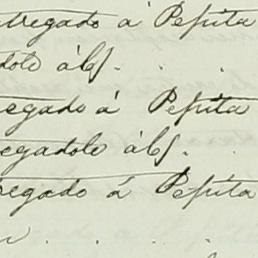 tregado á Pepita
dolo á
regado á Pepita
egadolo á
regado á Pepita